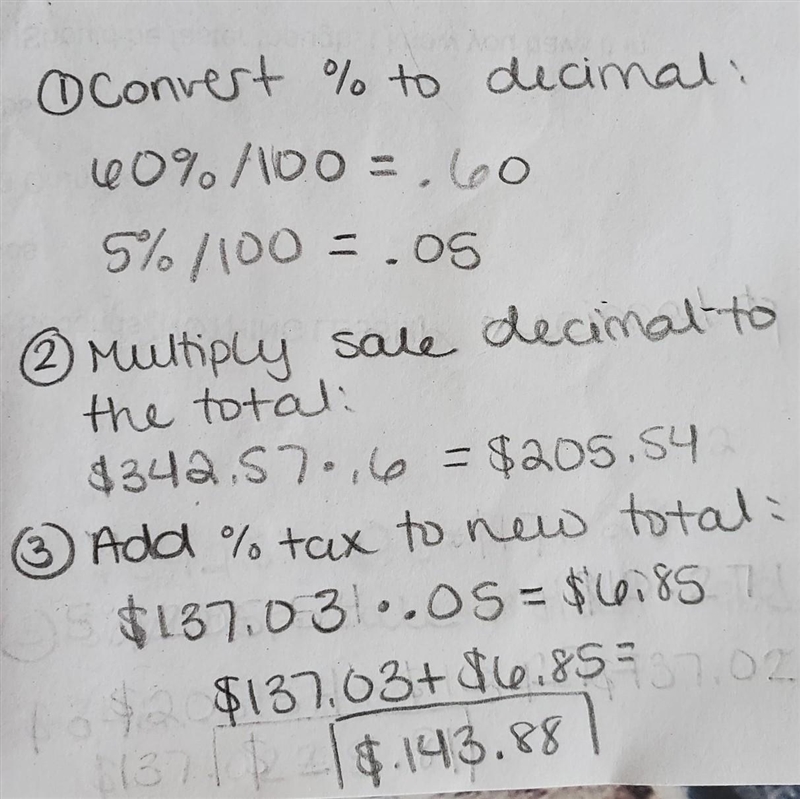 ① Convert % to decimal:
60%/100 = .60
5%/100 = .05
② Multiply sale decimal to
the total:
$342.57 · .6 = $205.54
③ Add % tax to new total:
$137.03 · .05 = $6.85
$137.03 + $6.85 =
$.143.88